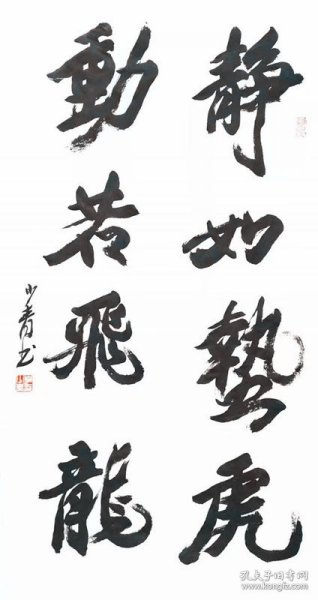 静如蛰虎
動若飛龍
小青书
孔夫子旧书网